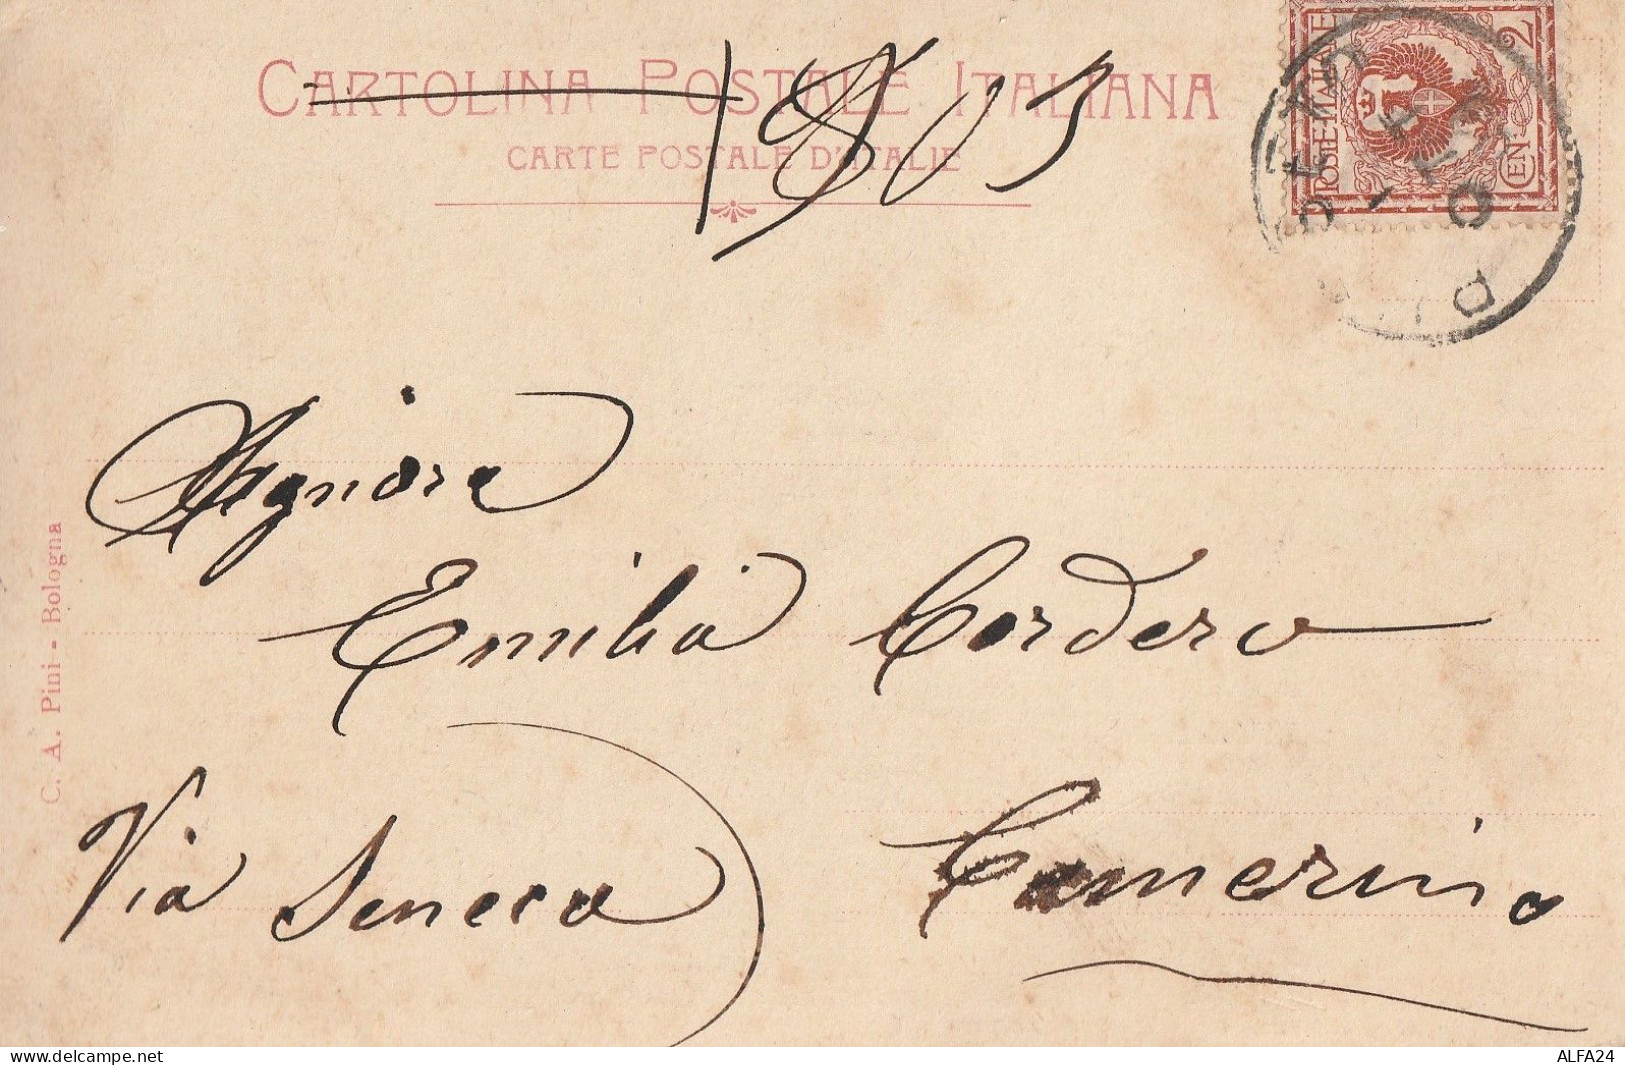 CARTOLINA POSTALE ITALIANA
CARTE POSTALE D'ITALIE
1903
POSTE ITALIANE
CEN. 2
Signora
Emilia Cordero
Via Seneca
Camerino
C. A. Pini - Bologna
www.delcampe.net
ALFA24